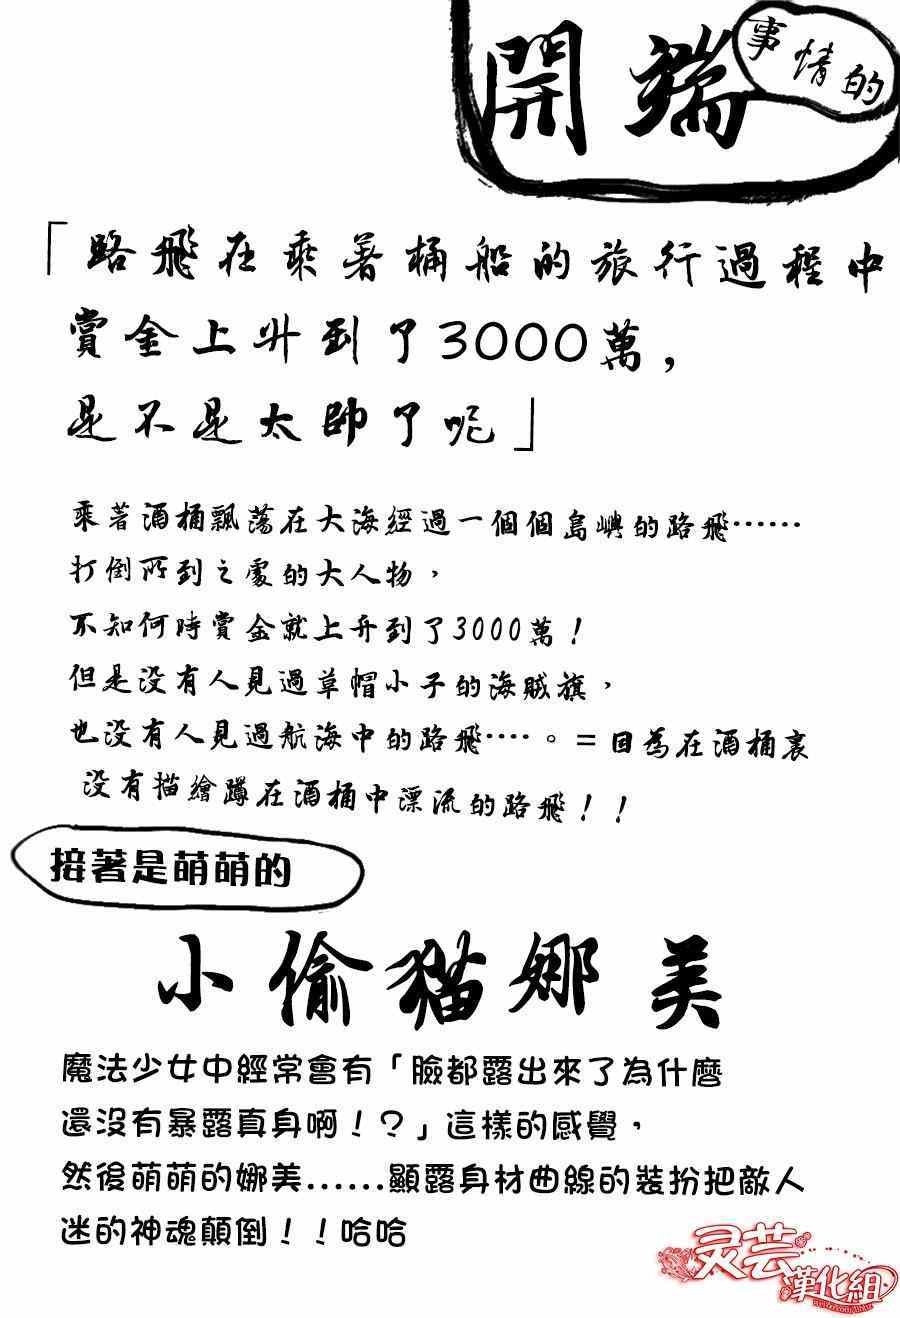 事情的
開端
「路飛在乘著桶船的旅行過程中
賞金上升到了3000萬，
是不是太帥了呢」
乘著酒桶飄蕩在大海經過一個個島嶼的路飛……
打倒所到之處的大人物，
不知何時賞金就上升到了3000萬！
但是没有人見過草帽小子的海賊旗，
也没有人見過航海中的路飛……。＝因為在酒桶裏
没有描繪蹲在酒桶中漂流的路飛！！
接著是萌萌的
小偷貓娜美
魔法少女中經常會有「臉都露出來了為什麼
還沒有暴露真身啊！？」這樣的感覺，
然後萌萌的娜美……顯露身材曲線的裝扮把敵人
迷的神魂顛倒！！哈哈
灵芸
漢化組